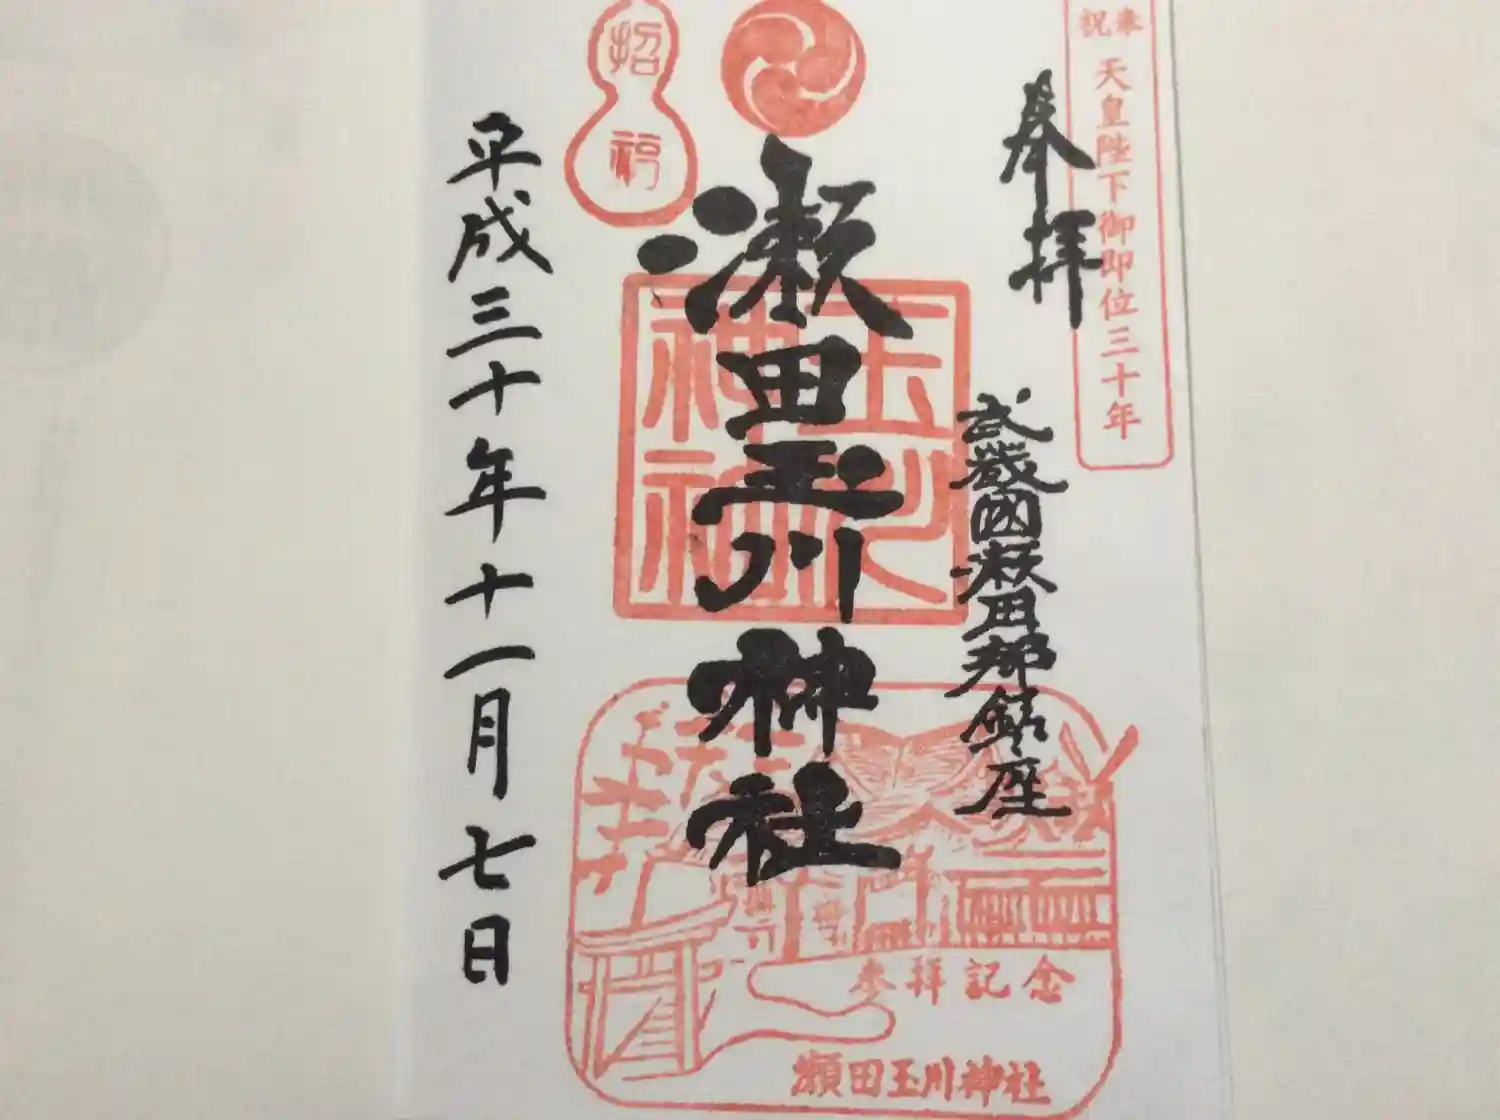 奉祝
天皇陛下御即位三十年
奉拝
武蔵國瀬田郷鎮座
瀬田玉川神社
玉川
神社
招福
平成三十年十一月七日
参拝記念
瀬田玉川神社